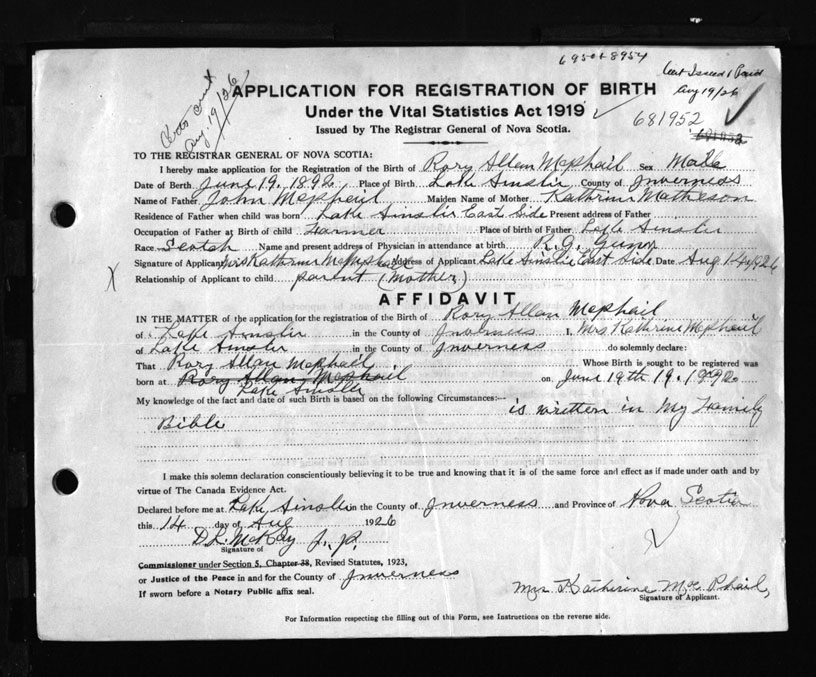 69501-8954
Cert Issued & Paid
Aug 19/26
Aug 19/26
APPLICATION FOR REGISTRATION OF BIRTH
Under the Vital Statistics Act 1919
681952
681952
Issued by The Registrar General of Nova Scotia.
TO THE REGISTRAR GENERAL OF NOVA SCOTIA:
I hereby make application for the Registration of the Birth of Rory Allan Mcphail Sex Male
Date of Birth June 19, 1892 Place of Birth Lake Ainslie County of Inverness
Name of Father John Mcphail Maiden Name of Mother Kathrine Matheson
Residence of Father when child was born Lake Ainslie East Side Present address of Father
Occupation of Father at Birth of child Farmer Place of birth of Father Lake Ainslie
Race Scotch Name and present address of Physician in attendance at birth R.G. Gunn
Signature of Applicant Mrs Kathrine McMphail Address of Applicant Lake Ainslie East Side Date Aug 14 1926
Relationship of Applicant to child parent (Mother)
X
AFFIDAVIT
IN THE MATTER of the application for the registration of the Birth of Rory Allan Mcphail
of Lake Ainslie in the County of Inverness I, Mrs Kathrine Mcphail
of Lake Ainslie in the County of Inverness do solemnly declare:
That Rory Allan Mcphail Whose Birth is sought to be registered was
born at Rory Allan Mcphail on June 19th 19, 1892
Lake Ainslie
My knowledge of the fact and date of such Birth is based on the following Circumstances:—
is written in My Family
Bible
I make this solemn declaration conscientiously believing it to be true and knowing that it is of the same force and effect as if made under oath and by
virtue of The Canada Evidence Act.
Declared before me at Lake Ainslie in the County of Inverness and Province of Nova Scotia
this 14 day of Aug 1926
D.L. McKay J.P.
Signature of
Commissioner under Section 5, Chapter 38, Revised Statutes, 1923,
or Justice of the Peace in and for the County of Inverness
If sworn before a Notary Public affix seal.
Mrs Katherine McPhail,
Signature of Applicant.
For Information respecting the filling out of this Form, see Instructions on the reverse side.